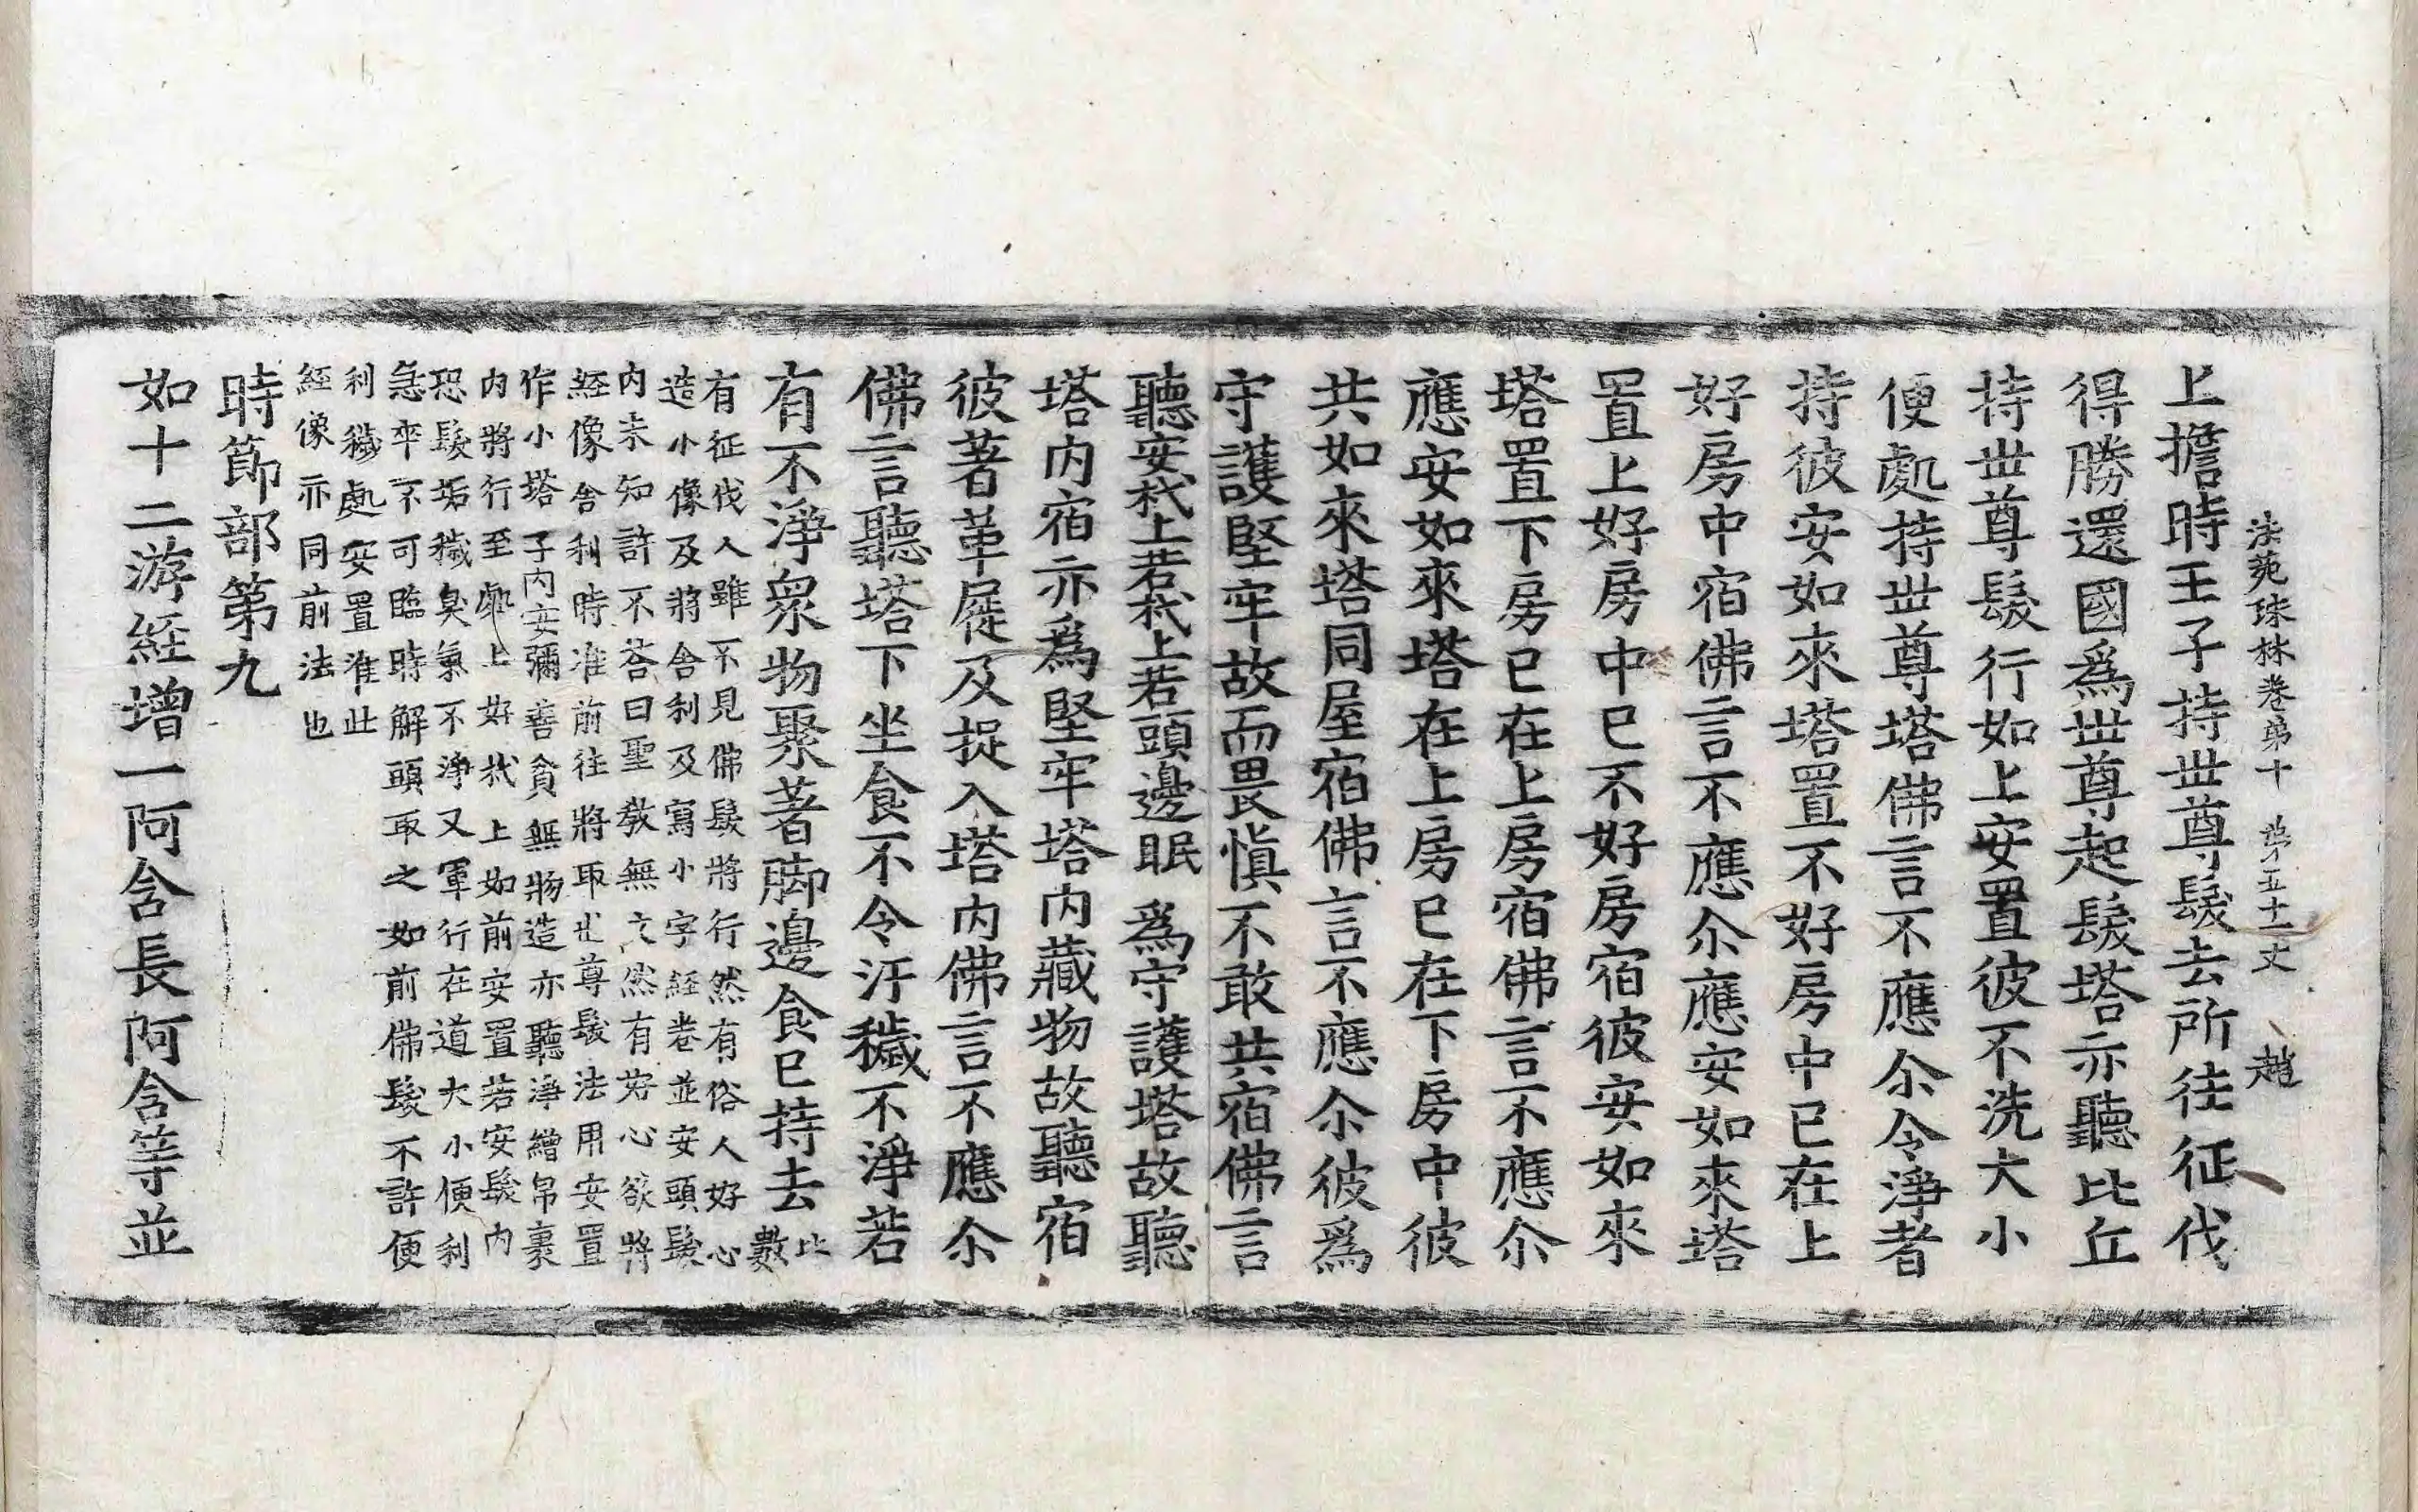 法苑珠林卷第十 第五十一丈 趙
上擔時王子持世尊髮去所往征伐
得勝還國爲世尊起髮塔亦聽比丘
持世尊髮行如上安置彼不洗大小
便處持世尊塔佛言不應尒令淨者
持彼安如來塔置不好房中已在上
好房中宿佛言不應尒應安如來塔
置上好房中已不好房宿彼安如來
塔置下房已在上房宿佛言不應尒
應安如來塔在上房已在下房中彼
共如來塔同屋宿佛言不應尒彼爲
守護堅牢故而畏愼不敢共宿佛言
聽安杙上若杙上若頭邊眠爲守護塔故聽
塔内宿亦爲堅牢塔内藏物故聽宿
彼著革屣及捉入塔内佛言不應尒
佛言聽塔下坐食不令汙穢不淨若
有不淨衆物聚著脚邊食已持去比
數
有征伐人雖不見佛髮將行然有俗人好心
造小像及將舍利及寫小字經卷並安頭髮
内未知許不荅曰聖教無文然有好心欲將
經像舍利時准前往將取世尊髮法用安置
作小塔子内安彌善貪無物造亦聽淨繒帛裹
内將行至處上好杙上如前安置若安髮内
恐髮垢穢臭氣不淨又軍行在道大小便利
急卒不可臨時解頭取之如前佛髮不許便
利穢處安置准此
經像亦同前法也
時節部第九
如十二游經增一阿含長阿含等並